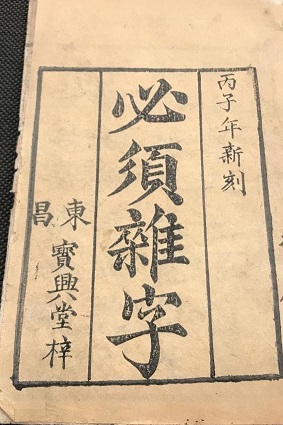 丙子年新刻
必須雜字
東昌
寳興堂梓